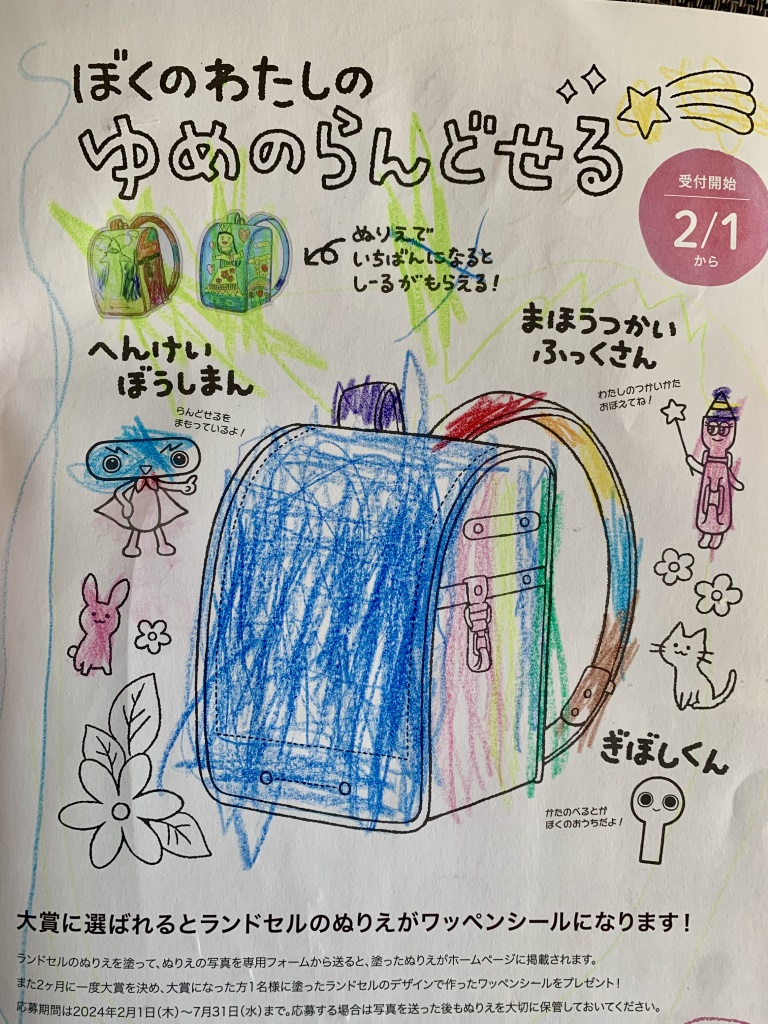 ぼくのわたしの
ゆめのらんどせる
受付開始
2/1
から
ぬりえで
いちばんになると
しーるがもらえる!
まほうつかい
ふっくさん
わたしのつかいかた
おぼえてね!
へんけい
ぼうしまん
らんどせるを
まもっているよ!
ぎぼしくん
かたのべるとが
ぼくのおうちだよ!
大賞に選ばれるとランドセルのぬりえがワッペンシールになります!
ランドセルのぬりえを塗って、ぬりえの写真を専用フォームから送ると、塗ったぬりえがホームページに掲載されます。
また2ヶ月に一度大賞を決め、大賞になった方1名様に塗ったランドセルのデザインで作ったワッペンシールをプレゼント!
応募期間は2024年2月1日(木)〜7月31日(水)まで。応募する場合は写真を送った後もぬりえを大切に保管しておいてください。